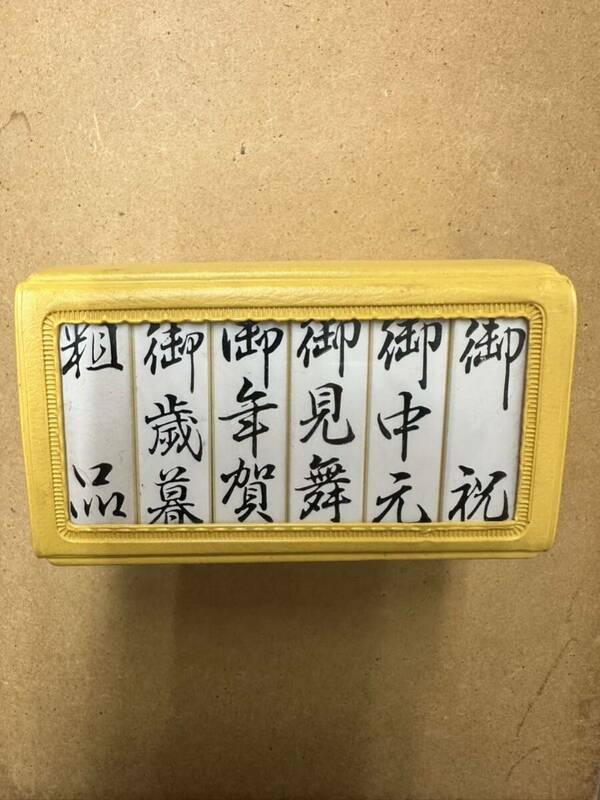 御祝
御中元
御見舞
御年賀
御歳暮
粗品